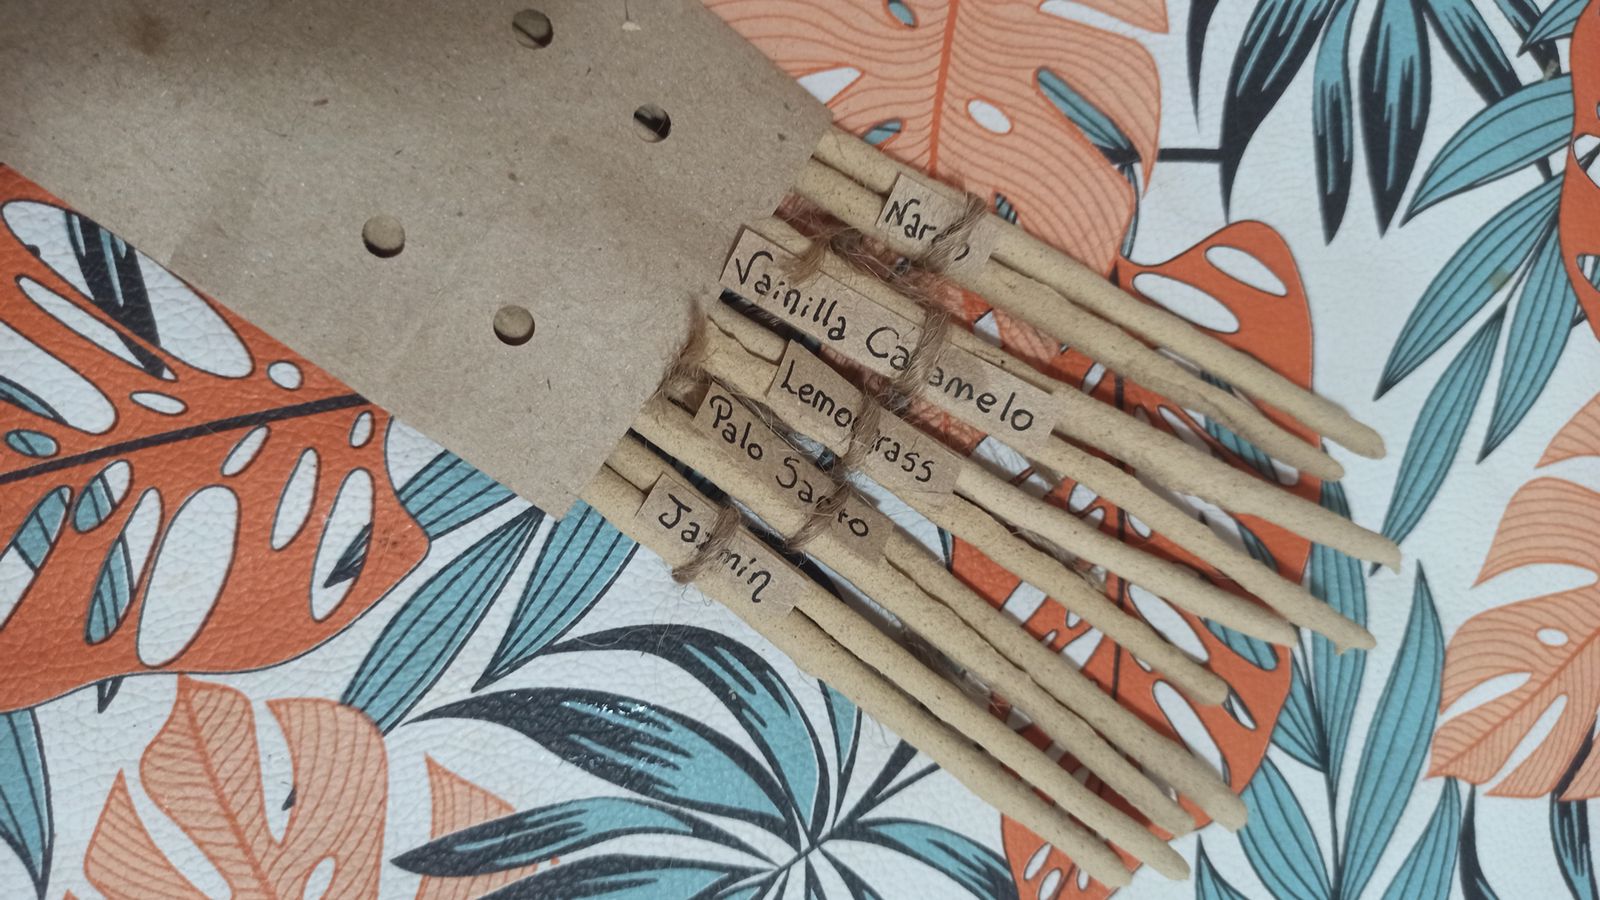 Vainilla Caramelo
Lemongrass
Palo Santo
Jazmin